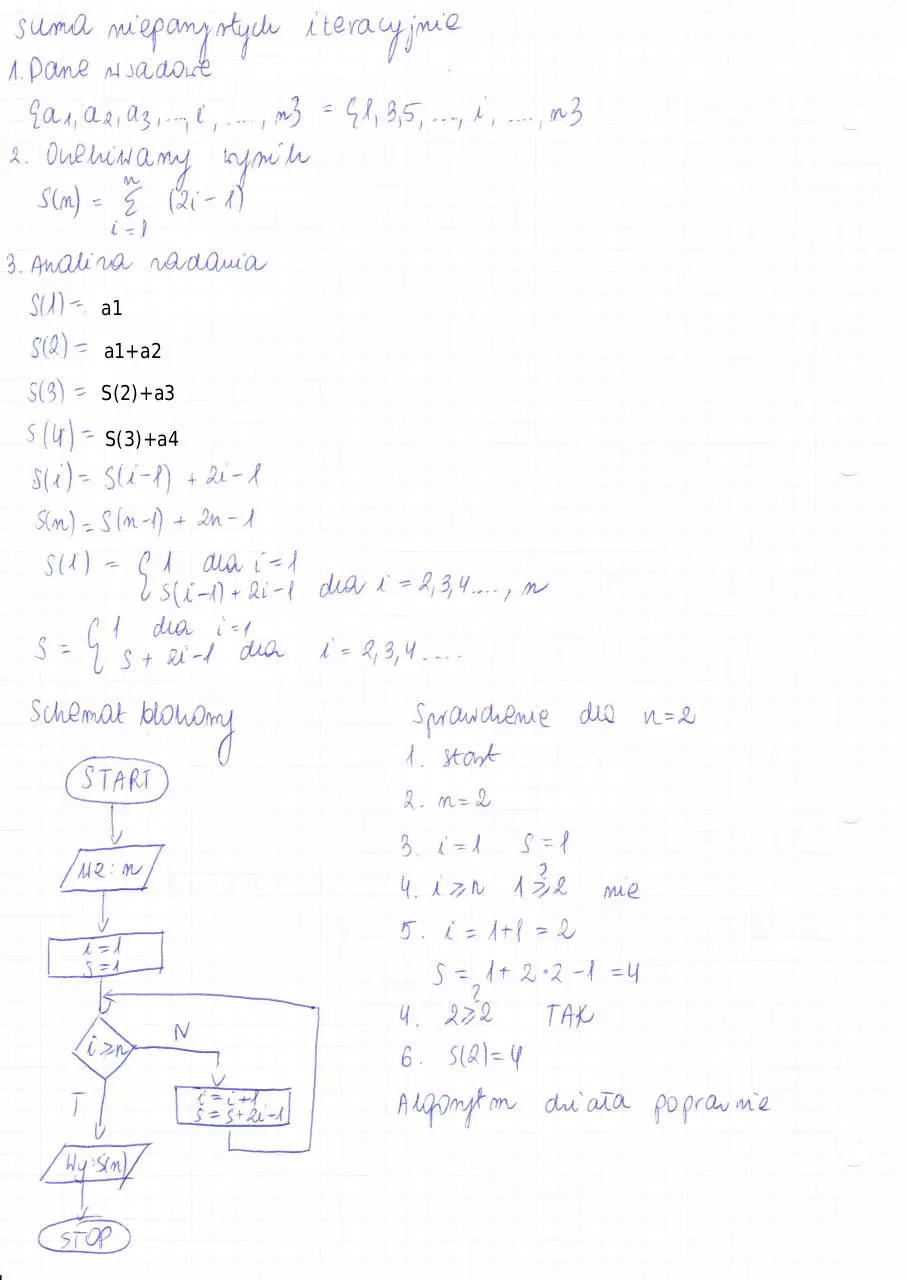 suma nieparzystych iteracyjnie
1. Dane wsadowe
{a1, a2, a3, ..., i, ...., n} = {1, 3, 5, ..., i, ...., n}
2. Oczekiwany wynik
S(n) = n Σ i=1 (2i-1)
3. Analiza zadania
S(1) = a1
S(2) = a1+a2
S(3) = S(2)+a3
S(4) = S(3)+a4
S(i) = S(i-1) + 2i-1
S(n) = S(n-1) + 2n-1
S(1) = { 1 dla i=1
S(i-1) + 2i-1 dla i = 2,3,4...., n
S = { 1 dla i=1
S + 2i-1 dla i = 2,3,4....
Schemat blokowy
START
We: n
i=1
S=1
i≥n
N
T
i=i+1
S=S+2i-1
Wy: S(n)
STOP
Sprawdzenie dla n=2
1. start
2. n=2
3. i=1 S=1
4. i≥n 1≥2 ? nie
5. i = 1+1 = 2
S = 1+2·2-1 = 4
4. 2≥2 ? TAK
6. S(2)=4
Algorytm działa poprawnie